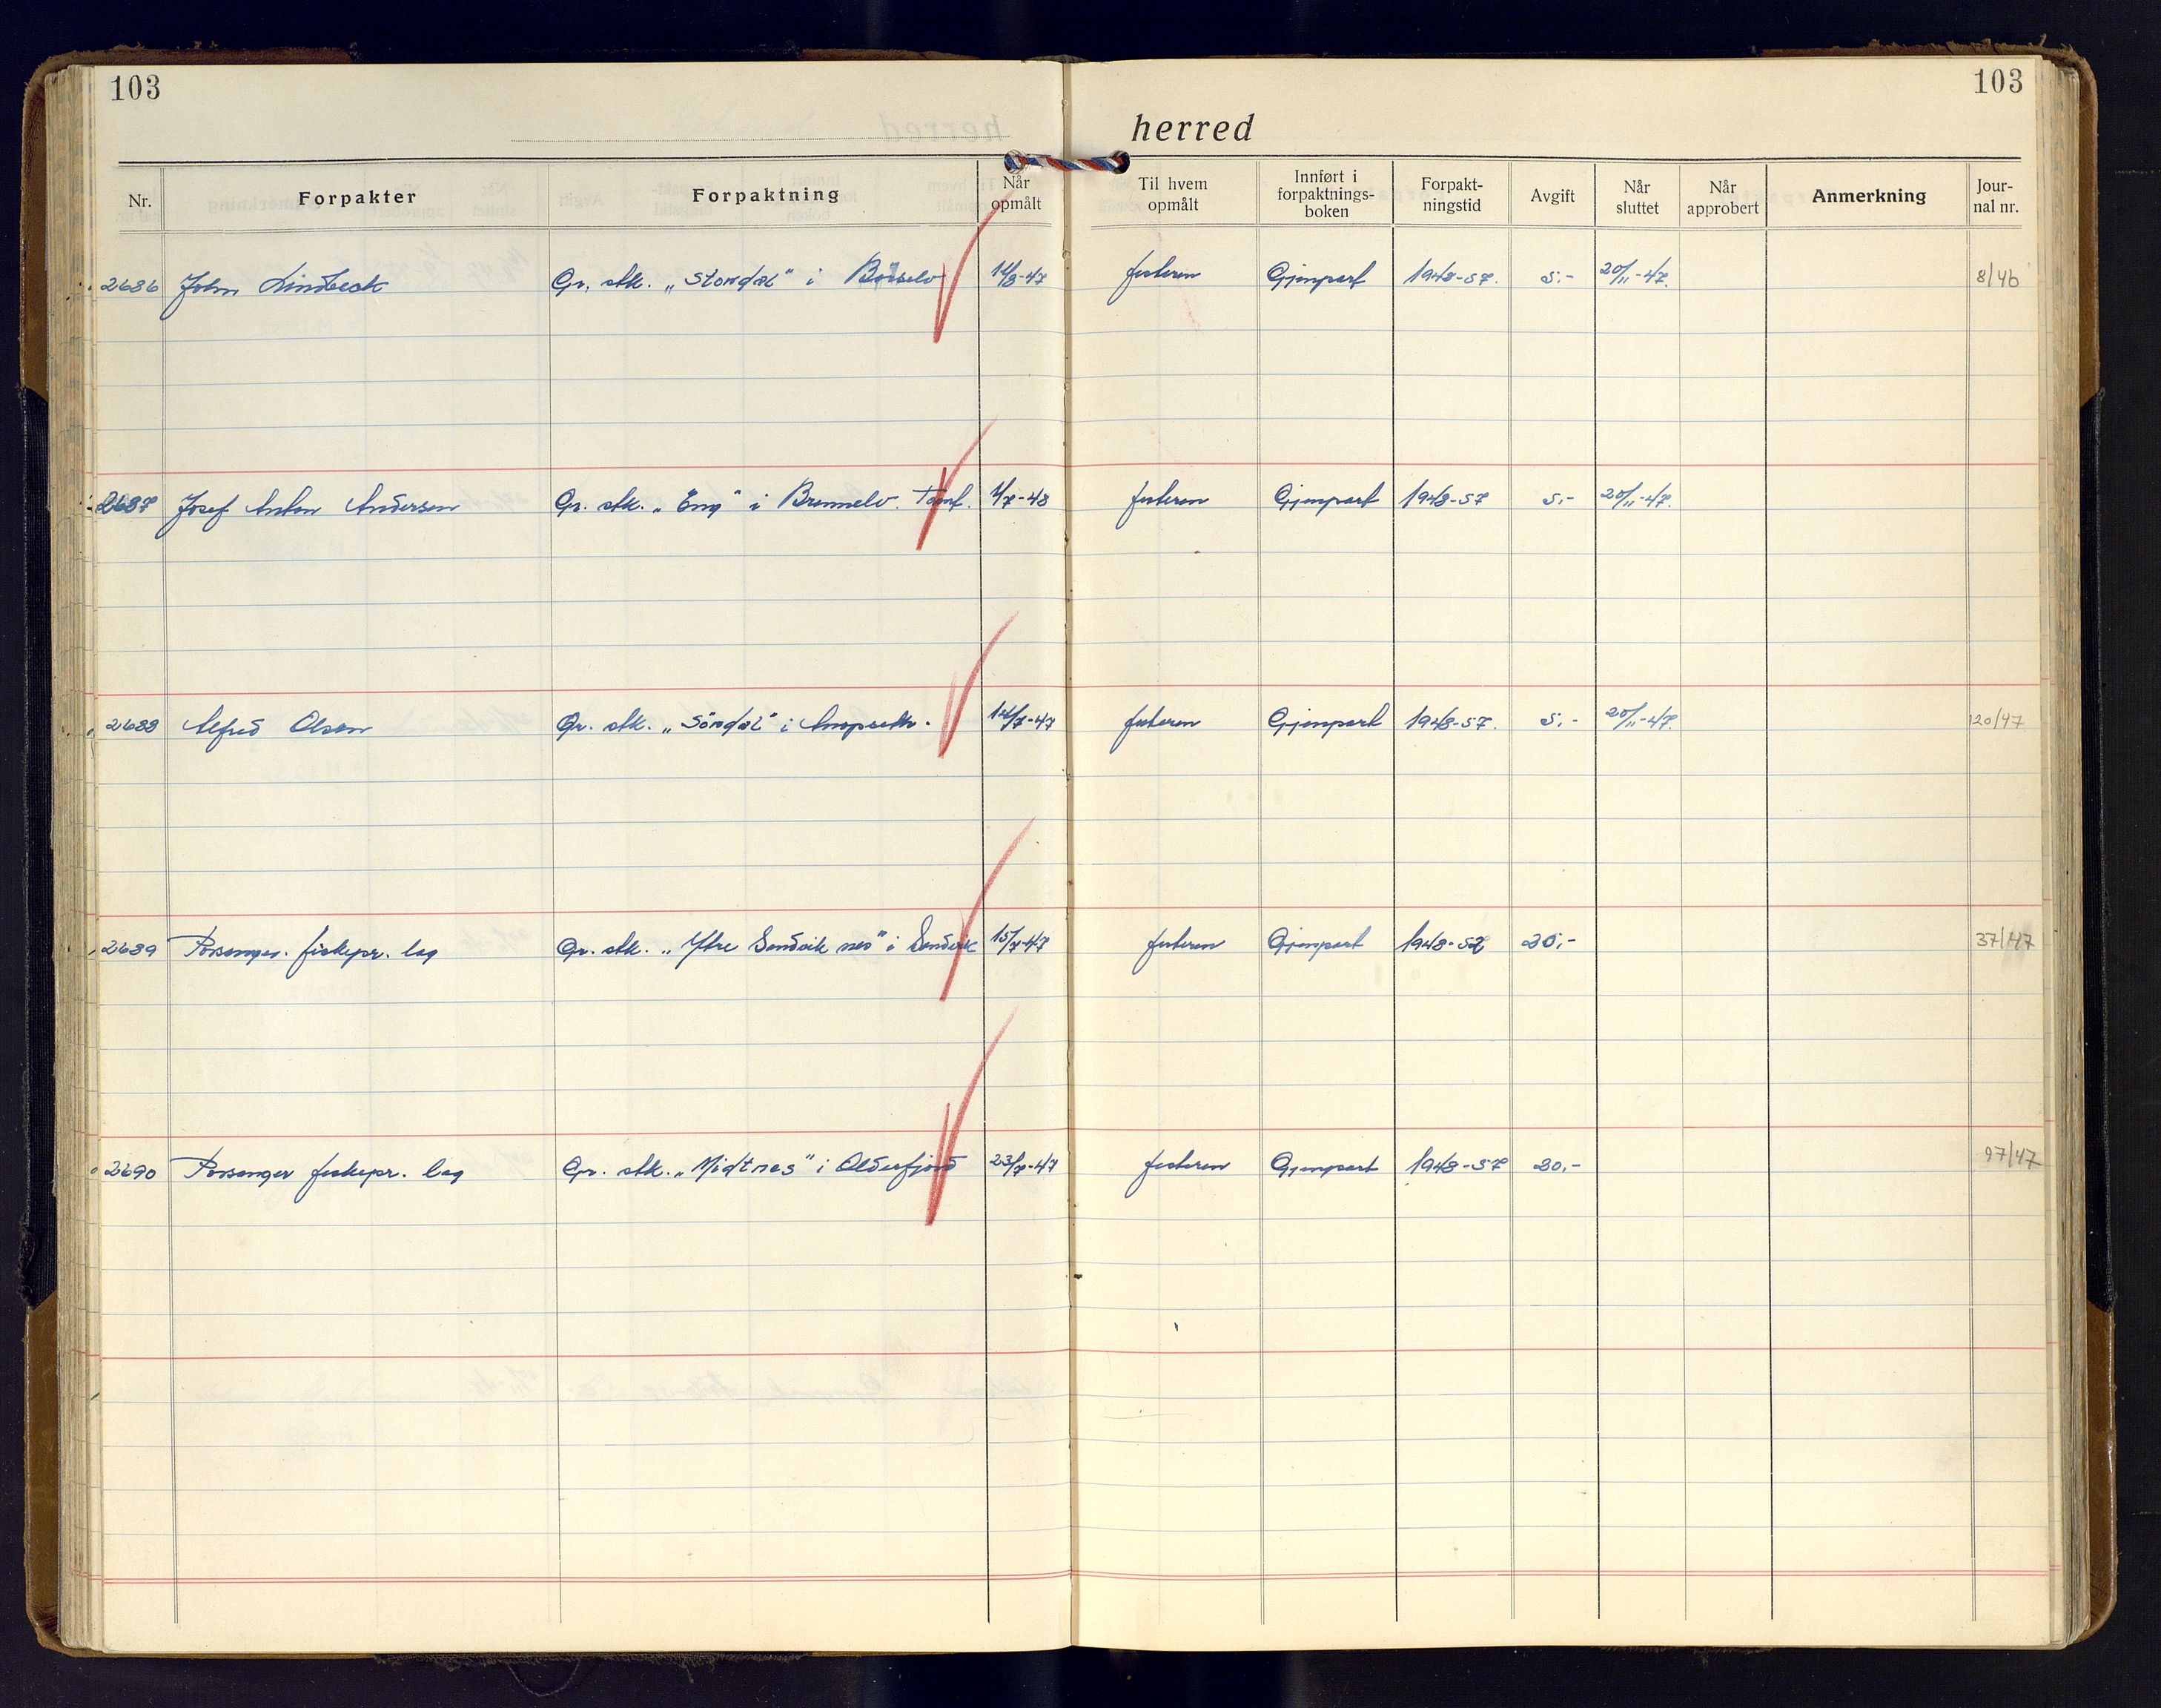 103
103
herred
Nr. Forpakter Forpaktning Når opmålt Til hvem opmålt Innført i forpaktnings-boken Forpakt-ningstid Avgift Når sluttet Når approbert Anmerkning Jour-nal nr.
2686 John Lindbeck Gr. stk. „Stordal" i Børselv 14/8-47 festeren Gjenpart 1948-57. 5.- 20/11-47. 8/46
2687 Josef Anton Andersen Gr. stk. „Eng" i Brennelv. Tomt. 1/7-48 festeren Gjenpart 1948-57 5.- 20/11-47.
2688 Alfred Olsen Gr. stk. „Sördal" i 14/7-47 festeren Gjenpart 1948-57. 5.- 20/11-47. 120/47
2689 Porsanger. fiskepr. lag Gr. stk. „Ytre Sandvik nes" i Sandvik 15/7-47 festeren Gjenpart 1948-52 20.- 37/47
2690 Porsanger fiskepr. lag Gr. stk. „Midtnes" i Olderfjord 23/7-47 festeren Gjenpart 1948-57 20.- 97/47